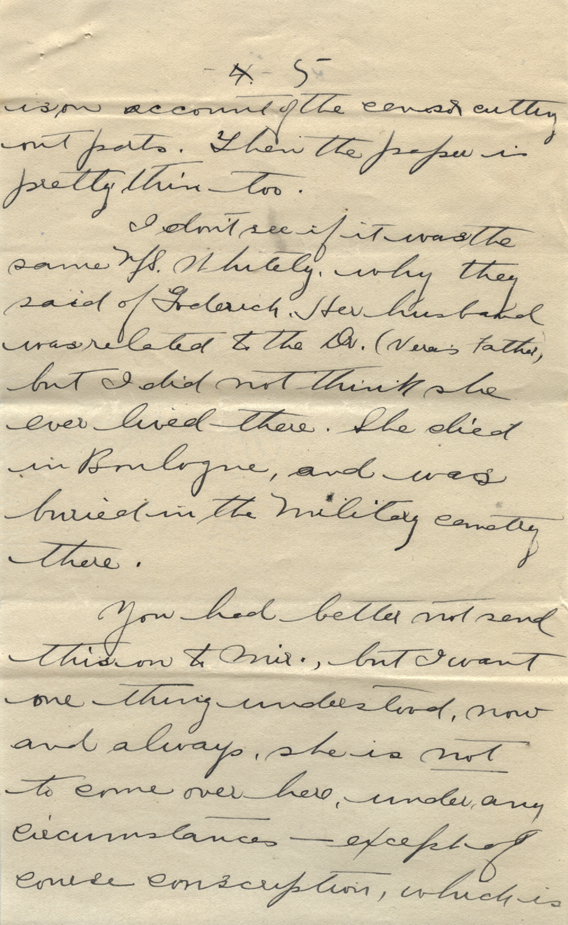 - 4 - 5
is on account of the censor cutting
out parts. Then the paper is
pretty thin too.
I don't see if it was the
same Whitely. why they
said of Goderich. Her husband
was related to the Dr. (Vera's Father,
but I did not think she
ever lived there. She died
in Boulogne, and was
buried in the Military cemetry
there.
You had better not send
this on to Mir., but I want
one thing understood, now
and always, she is not
to come over here, under any
circumstances — except of
course conscription, which is